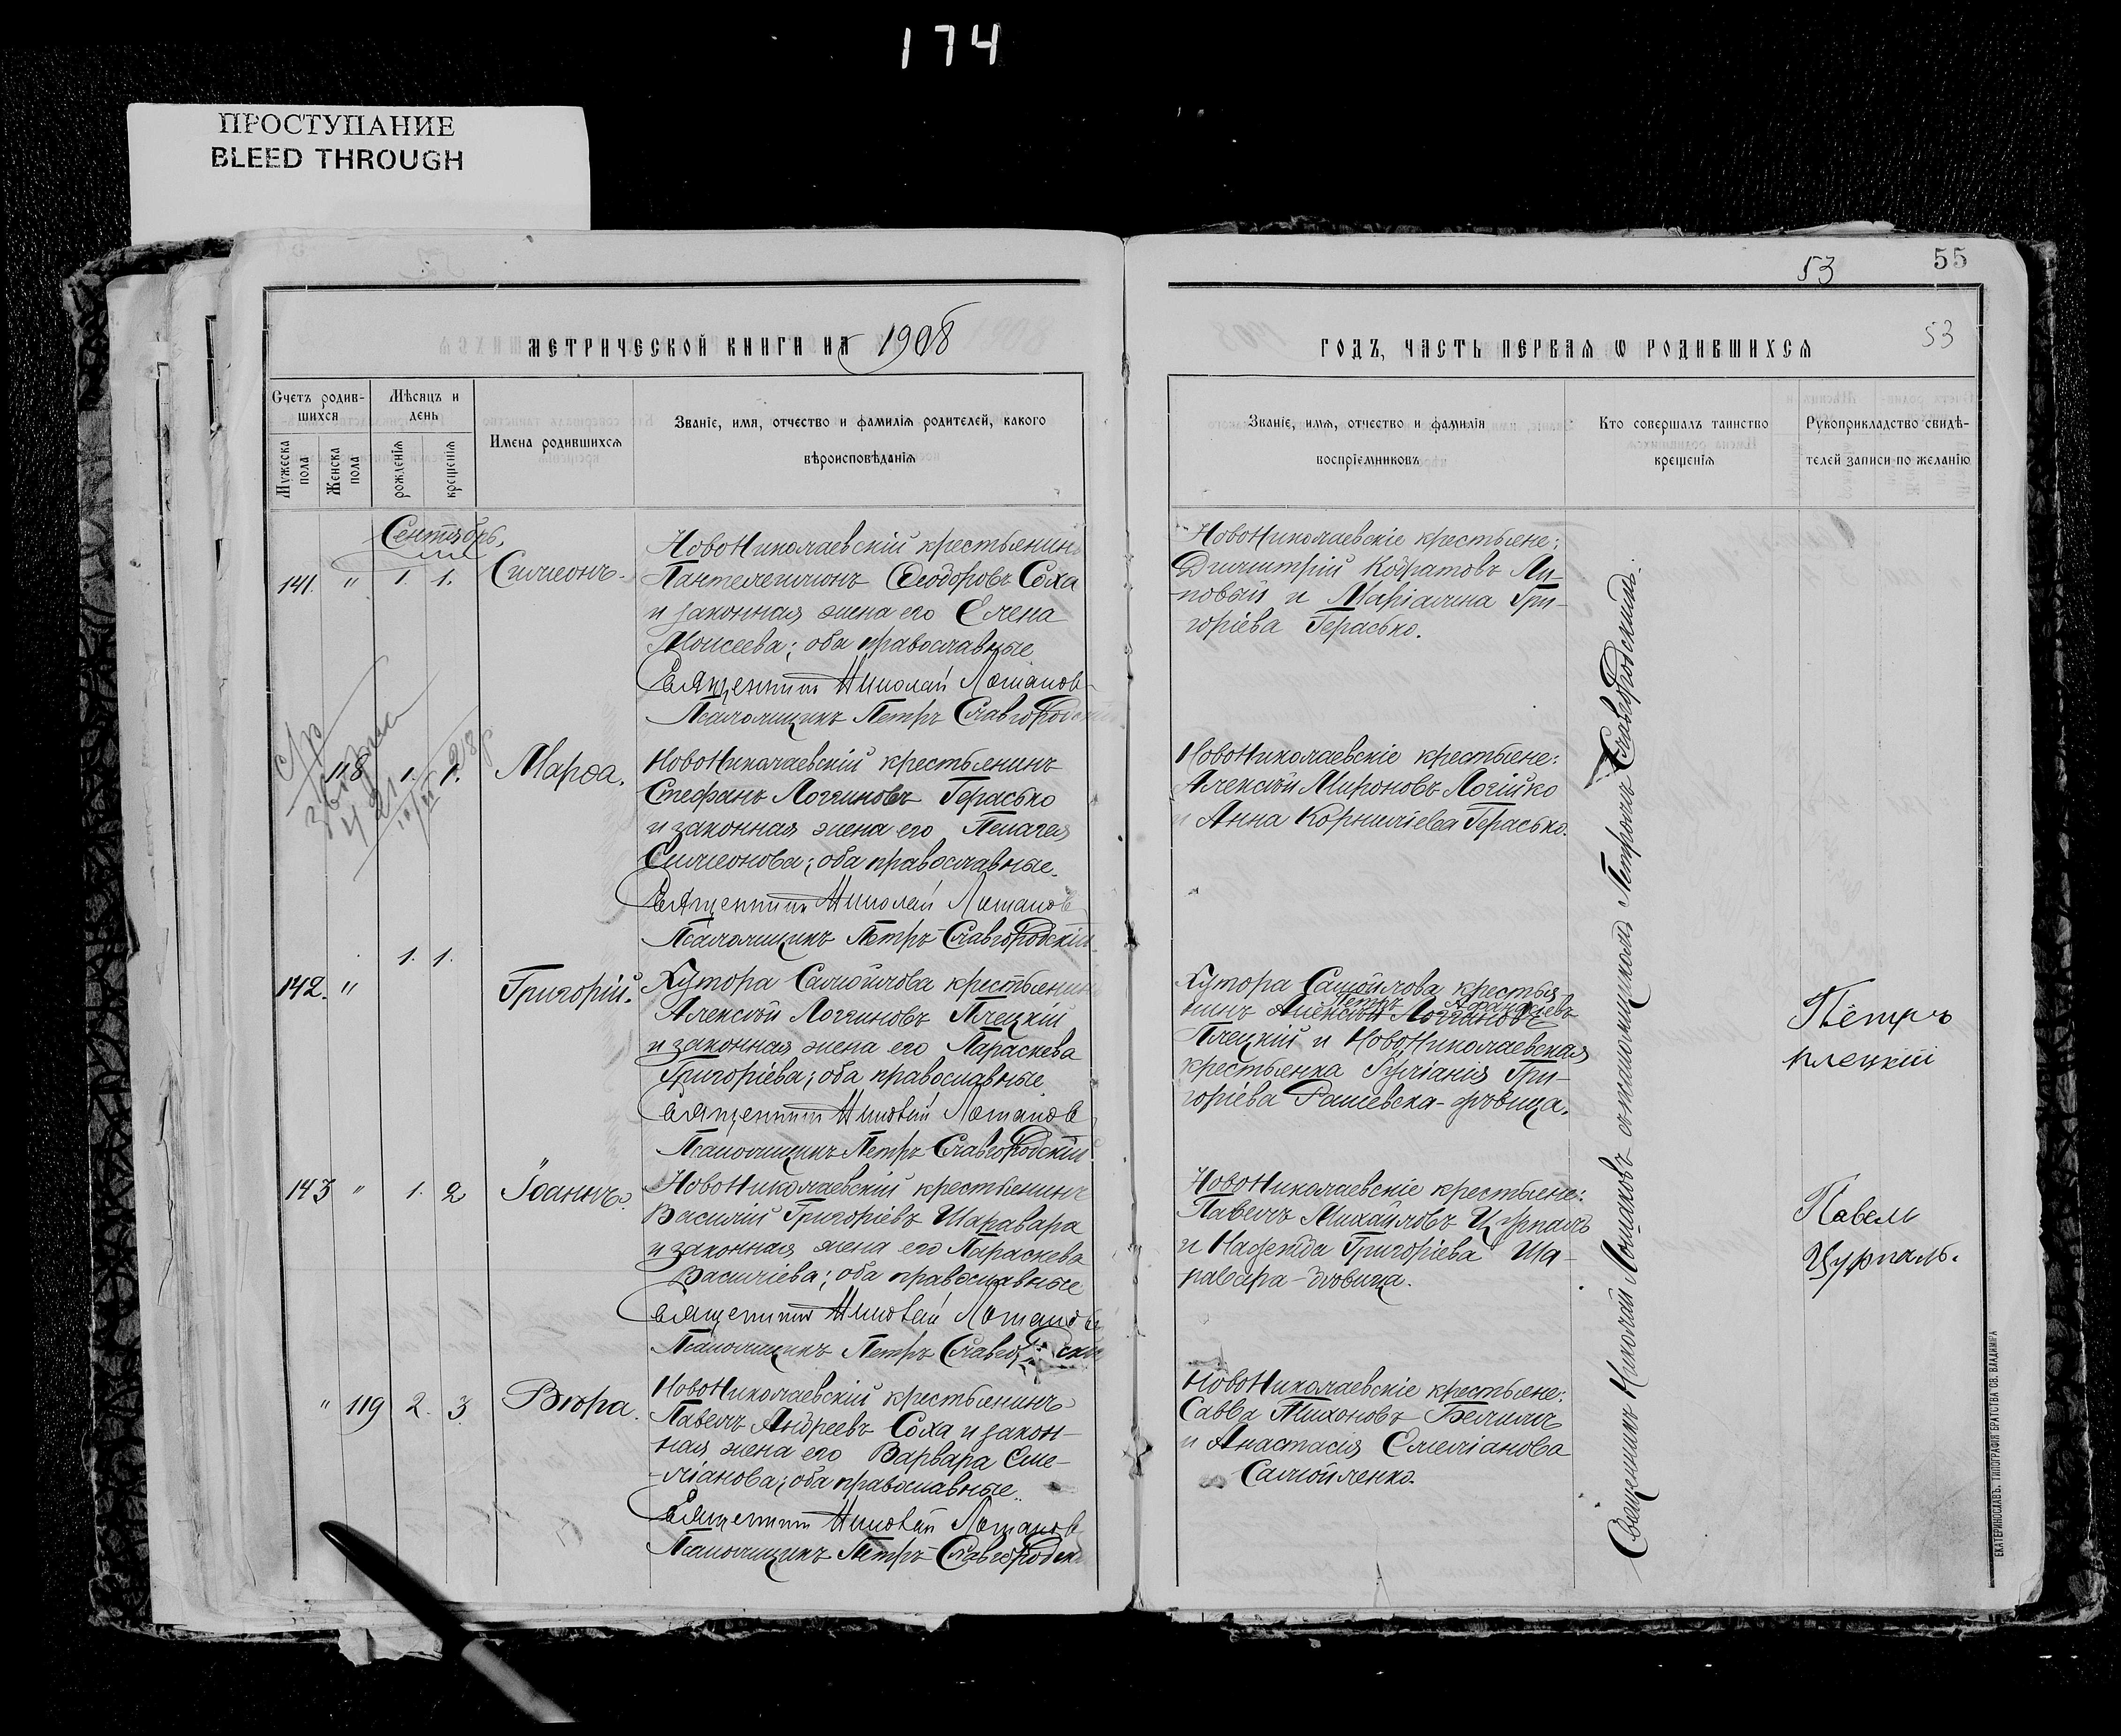 174
ПРОСТУПАНИЕ
BLEED THROUGH
55
53
53
МЕТРИЧЕСКОЙ КНИГИ НА 1908
ГОДЪ, ЧАСТЬ ПЕРВАЯ Ѡ РОДИВШИХСЯ
Счетъ родив-
шихся
Мужеска
пола
Женска
пола
Мѣсяцъ и
день
рожденія
крещенія
Имена родившихся
Званіе, имя, отчество и фамилія родителей, какого
вѣроисповѣданія
Званіе, имя, отчество и фамилія
воспріемниковъ
Кто совершалъ таинство
крещенія
Рукоприкладство свидѣ-
телей записи по желанію
Сентябрь.
141. " 1. 1. Симеонъ.
НовоНиколаевскій крестьянинъ
Пантелеимонъ Ѳеодоровъ Соха
и законная жена его Елена
Моисеева; оба православные
Священникъ Николай Лошаковъ
Псаломщикъ Петръ Славгородскій
НовоНиколаевскіе крестьяне:
Димитрій Кодратовъ Ли-
повый и Маріамна Гри-
горіева Герасько.
118 1. 1. Марѳа.
НовоНиколаевскій крестьянинъ
Стефанъ Логгиновъ Герасько
и законная жена его Пелагея
Симеонова; оба православные.
Священникъ Николай Лошаковъ
Псаломщикъ Петръ Славгородскій
НовоНиколаевскіе крестьяне:
Алексѣй Мироновъ Логійко
и Анна Корниліева Герасько.
142. " 1. 1. Григорій.
Хутора Самойлова крестьянинъ
Алексѣй Логгиновъ Плецкій
и законная жена его Параскева
Григоріева; оба православные
Священникъ Николай Лошаковъ
Псаломщикъ Петръ Славгородскій
Хутора Самойлова крестья-
Петръ
нинъ Алексѣй Логгиновъ
Плецкій и НовоНиколаевская
крестьянка Гуліанія Гри-
горіева Рашевска-дѣвица.
Петръ
плецкій
143 " 1. 2 Іоаннъ.
НовоНиколаевскій крестьянинъ
Василій Григоріевъ Шаравара
и законная жена его Параскева
Василіева; оба православные
Священникъ Николай Лошаковъ
Псаломщикъ Петръ Славгородскій
НовоНиколаевскіе крестьяне:
Павелъ Михайловъ Цурпаль
и Надежда Григоріева Ша-
равара-вдовица.
Павелъ
Цурпаль.
" 119 2. 3. Вѣра.
НовоНиколаевскій крестьянинъ
Павелъ Андреевъ Соха и закон-
ная жена его Варвара Еме-
ліанова; оба православные.
Священникъ Николай Лошаковъ
Псаломщикъ Петръ Славгородскій
НовоНиколаевскіе крестьяне:
Савва Тихоновъ Белимъ
и Анастасія Емеліанова
Самойленко.
Священникъ Николай Лошаковъ съ псаломщикомъ Петромъ Славгородскимъ.
ЕКАТЕРИНОСЛАВЪ. ТИПОГРАФІЯ БРАТСТВА СВ. ВЛАДИМІРА